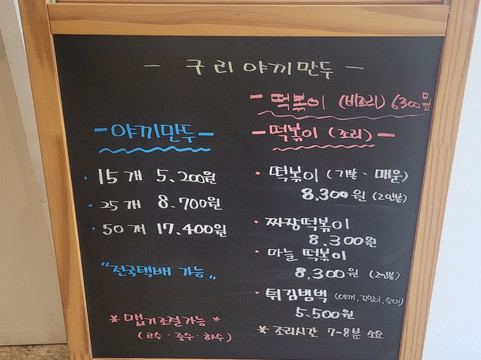 - 구리야끼만두 -
- 떡볶이 (비조리) 6,300원
- 야끼만두 -
- 떡볶이 (조리) -
· 15개 5,200원
· 25개 8,700원
· 50개 17,400원
"전국택배 가능"
※ 맵기조절가능 *
(고수 · 중수 · 하수)
· 떡볶이 (기본 · 매운)
8,300원 (2인분)
· 짜장떡볶이
8,300원
· 마늘 떡볶이
8,300원 (2인분)
· 튀김범벅 (야끼, 김말이, 순대)
5,500원
※ 조리시간 7~8분 소요